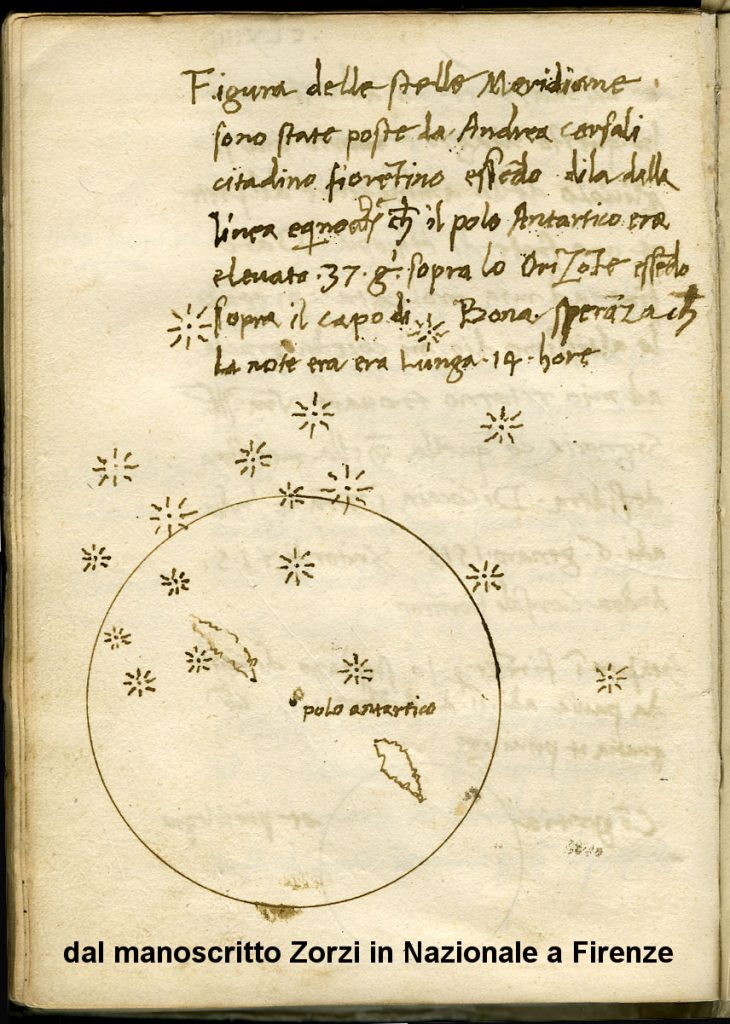 Figura delle stelle Meridiane
sono state poste da Andrea corsali
citadino fiorẽtino essẽdo dila dalla
linea il polo Antartico era
elevato .37. g. sopra lo OriZõte essẽdo
sopra il capo di Bona sperãza
la note era era Lunga .14. hore
polo antartico
dal manoscritto Zorzi in Nazionale a Firenze